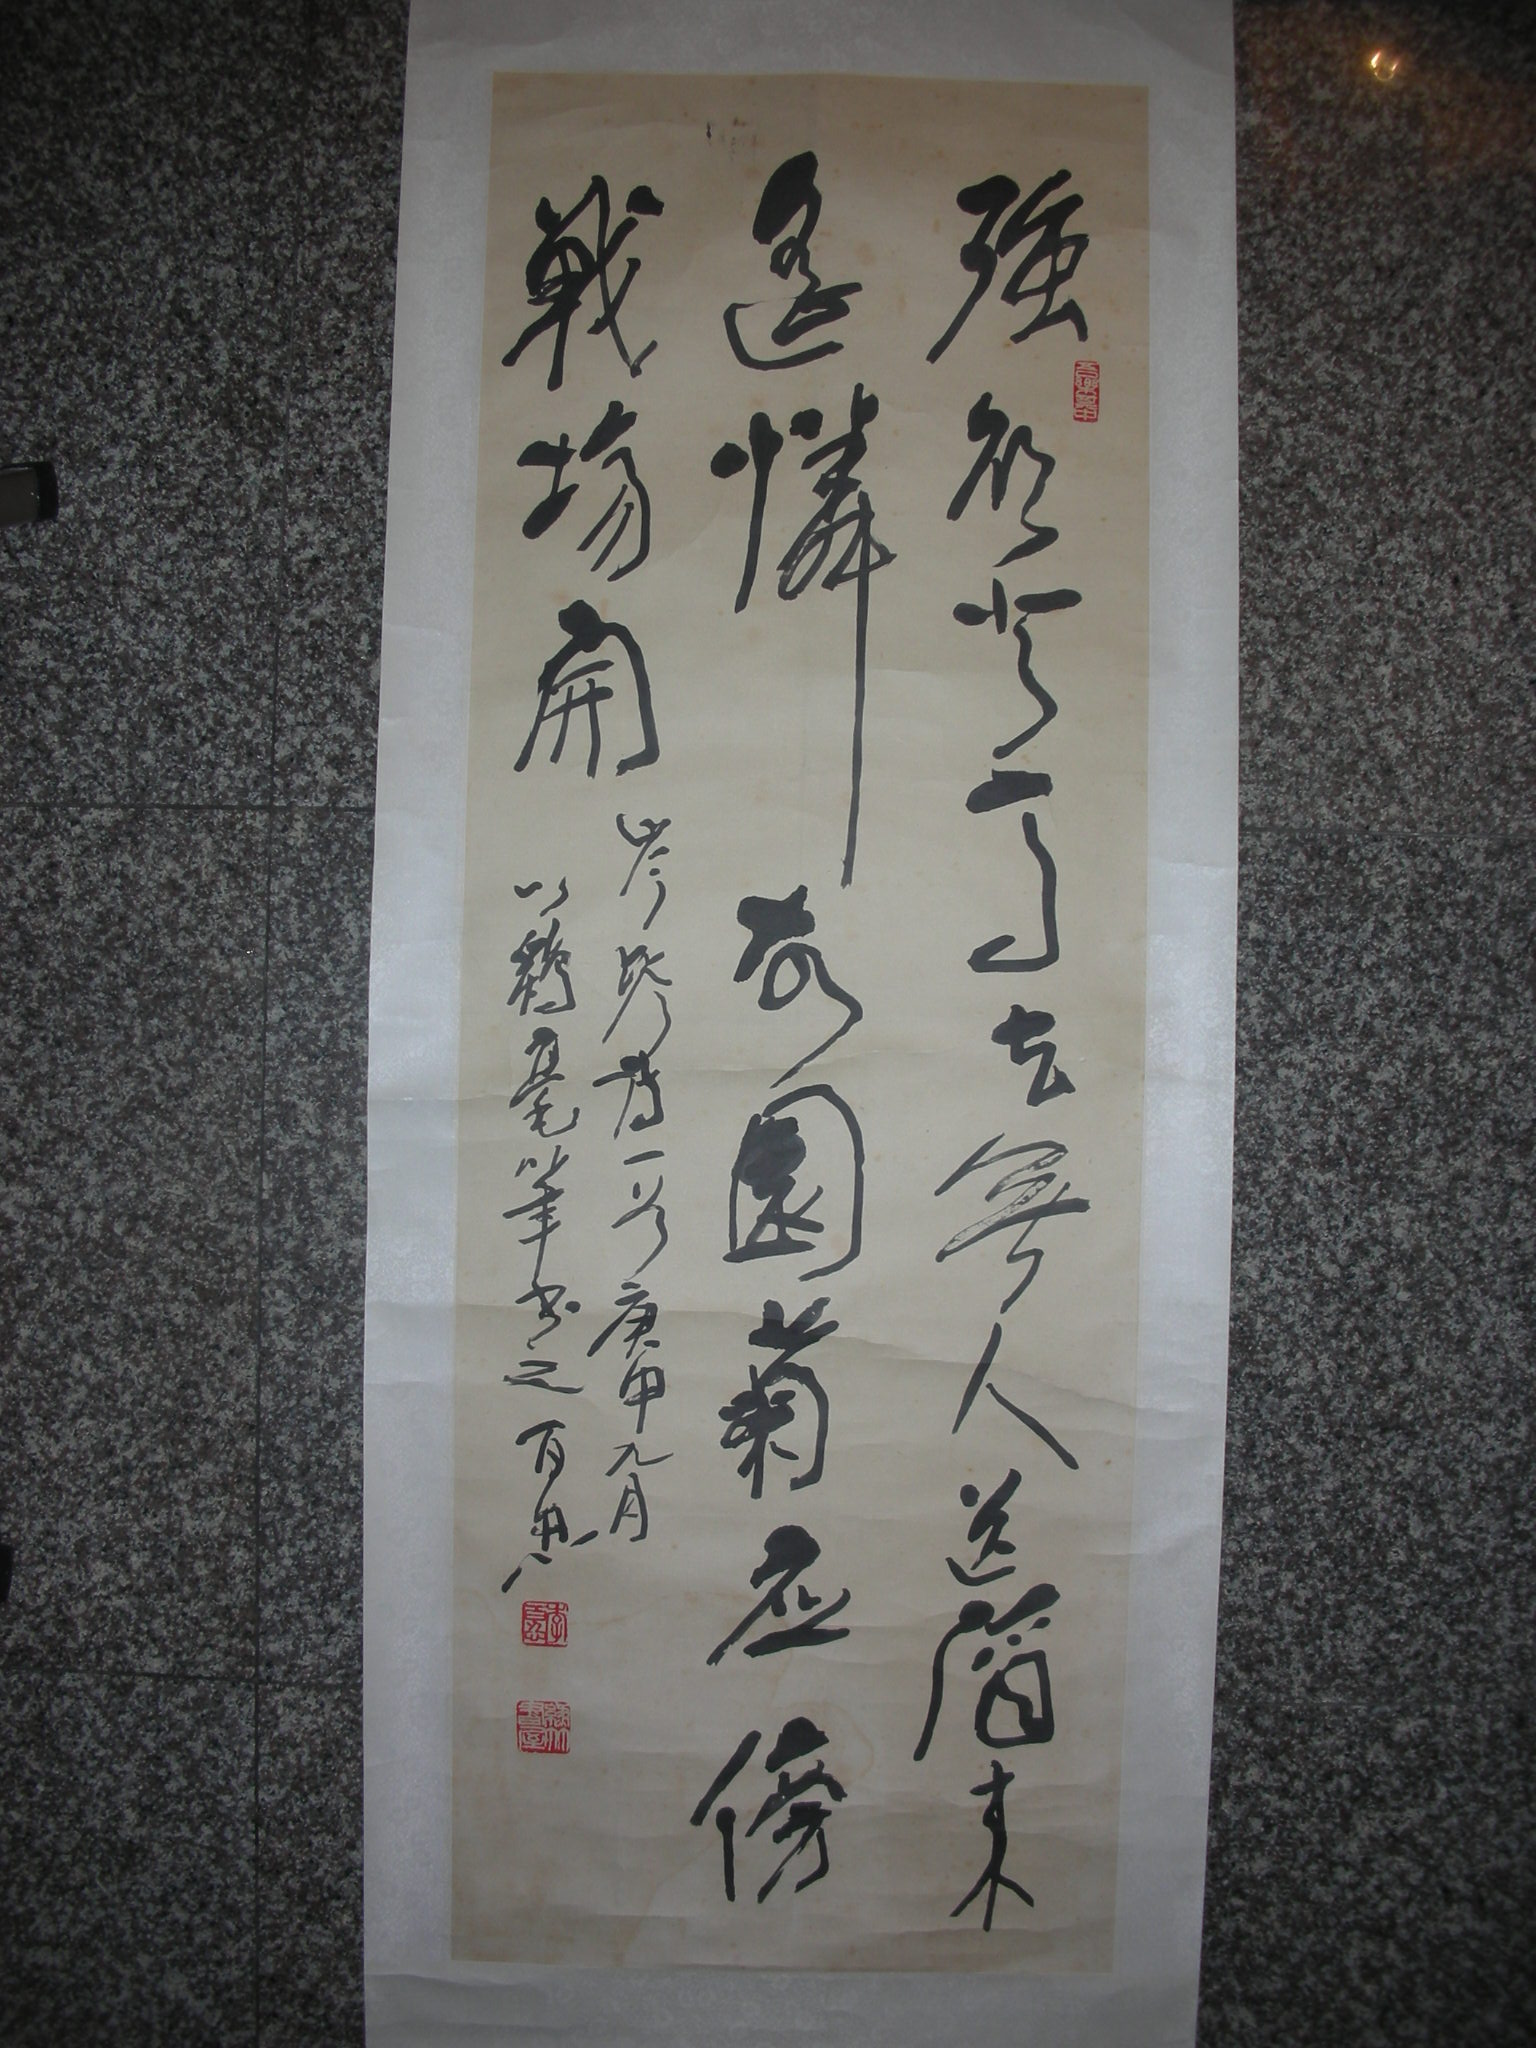 強欲登高去無人送酒来
遙憐故園菊应傍
戰場開
岑參詩一首庚申九月
以鷄毫筆书之百忍